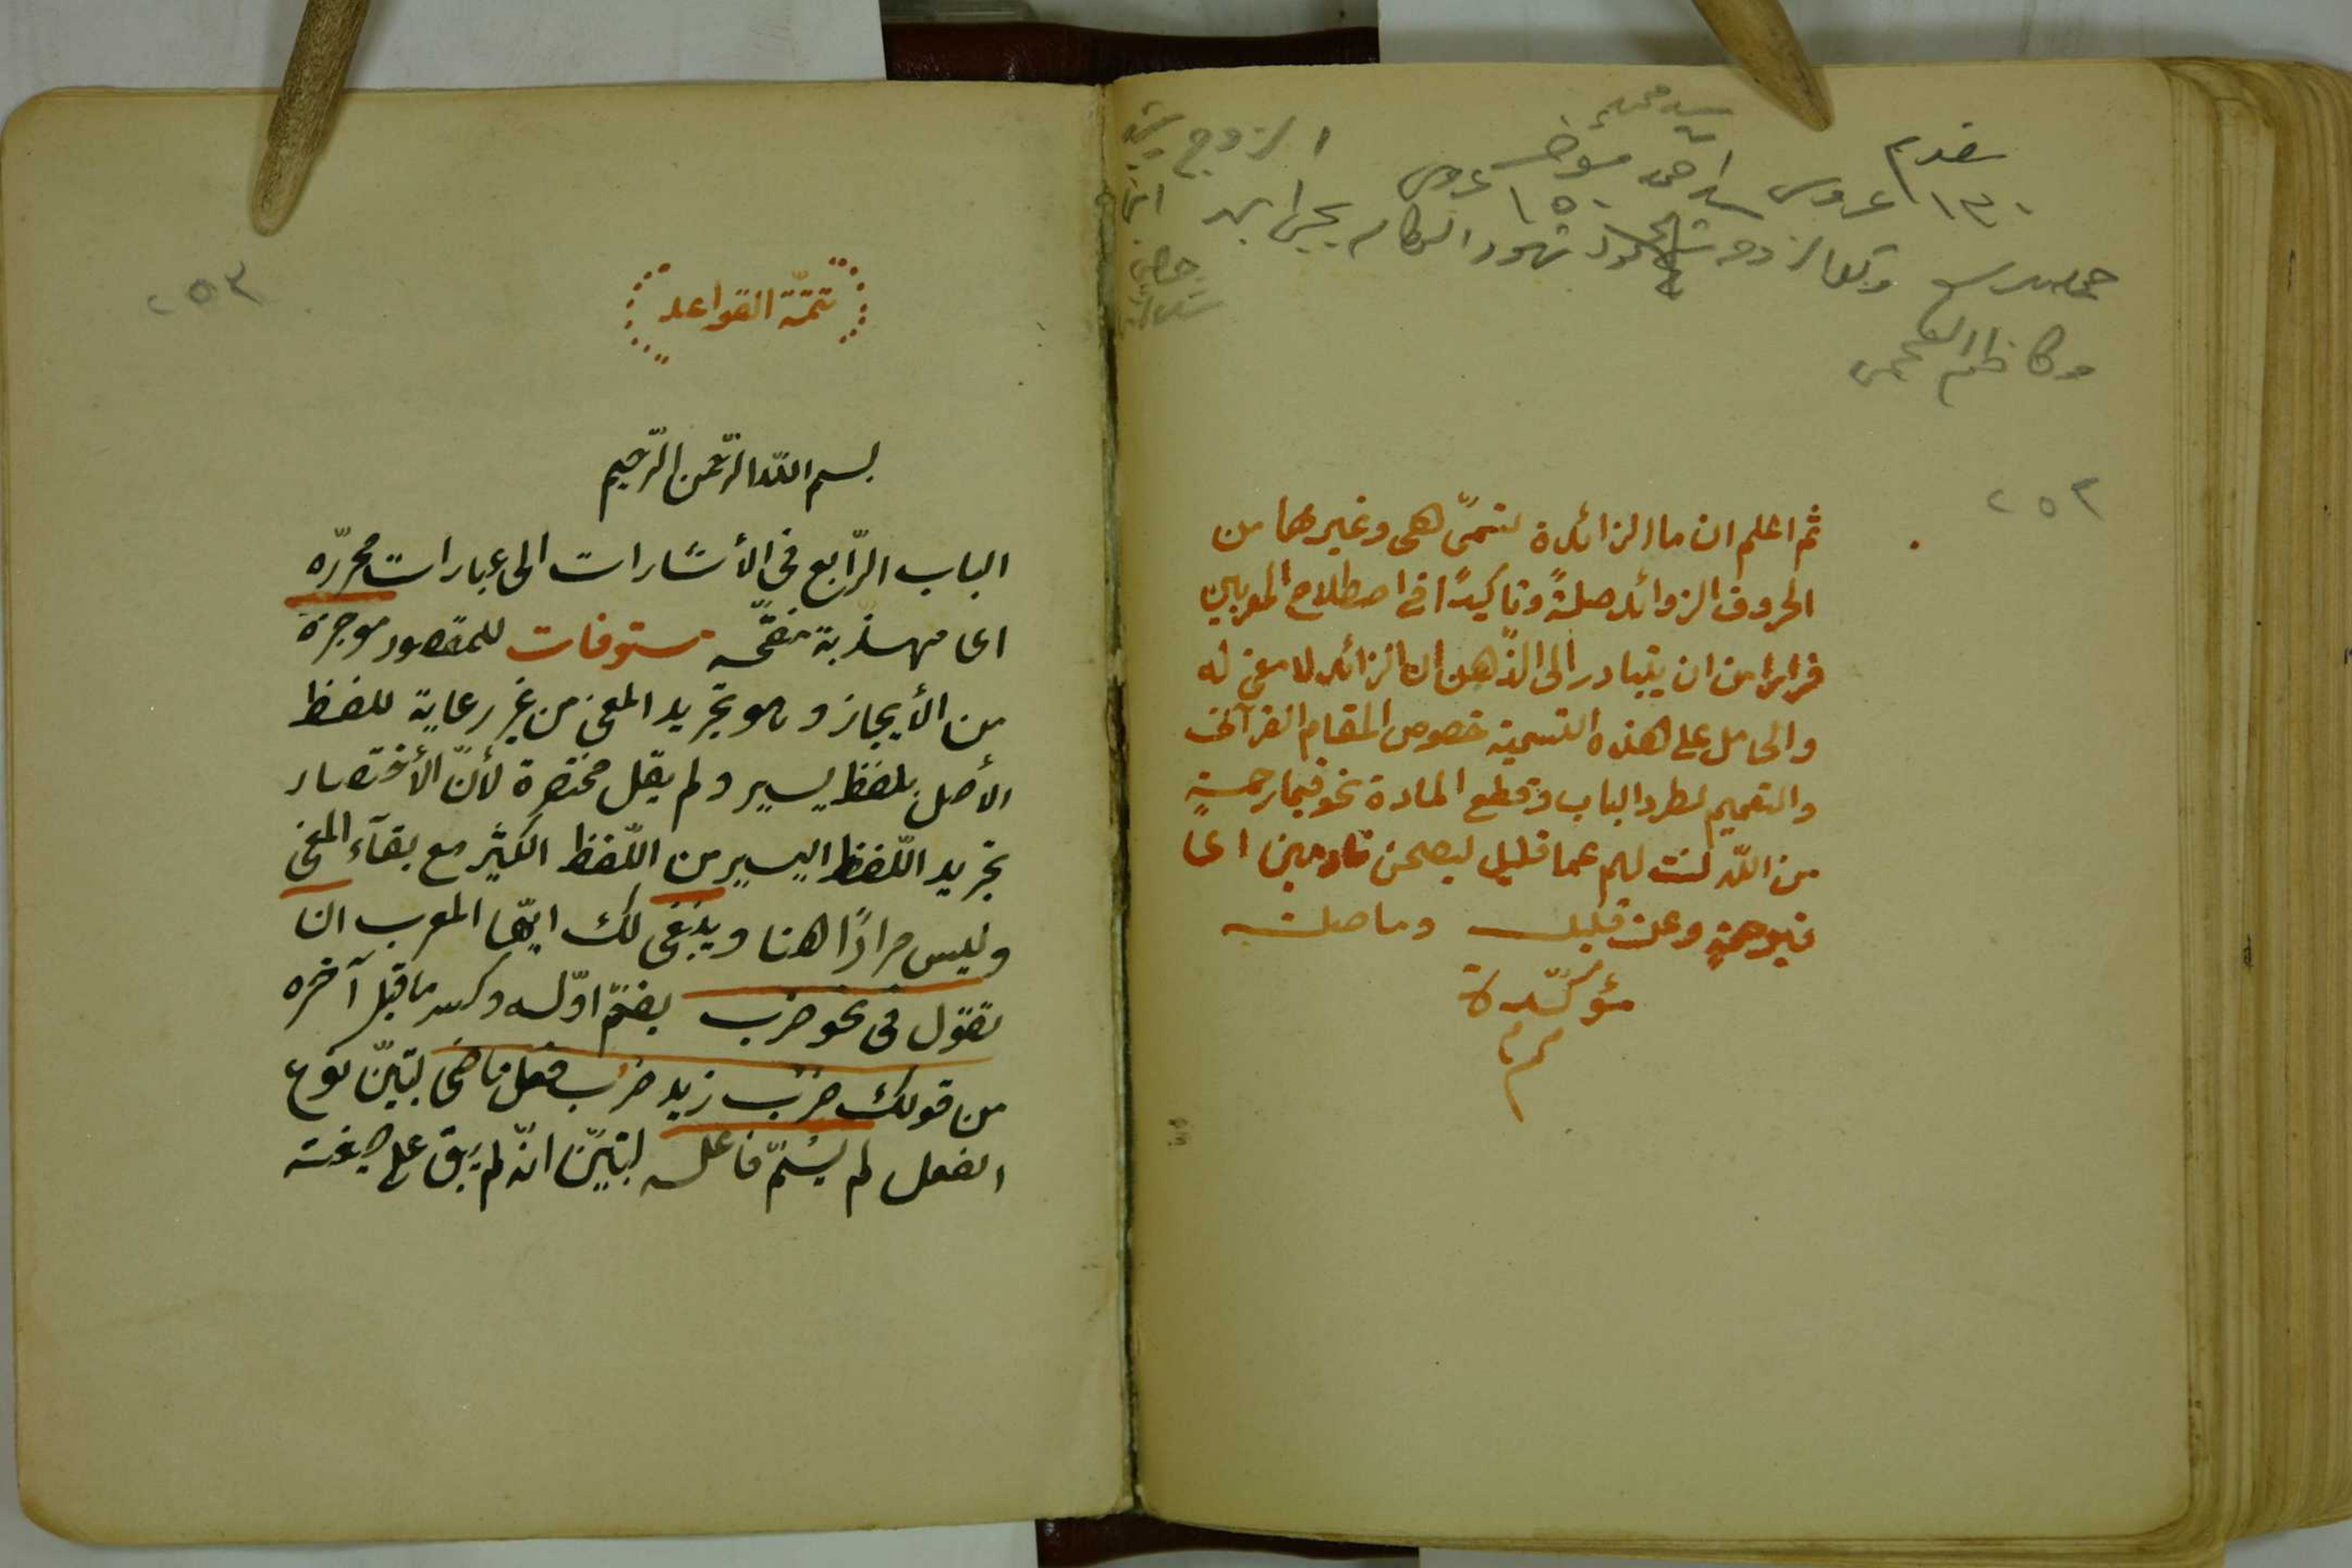 ٢٥٢
ثم اعلم ان ما الزائدة تسمىّ هى وغيرها من
الحروف الزوائد صلةً وتاكيدًا فى اصطلاح المعربين
فرارا من ان يتبادر الى الذّهن ان الزائد لا معنى له
والحامل على هذه التسمية خصوص المقام القرآنى
والتعميم لطرد الباب وقطع المادة نحو فبما رحمةٍ
من اللّه لنت لهم عما قليل ليصبحن نادمين اى
فبرحمةٍ وعن قليل وما صلة
مؤكّدة
٢٥٣
تتمّة القواعد
بسم اللّه الرّحمن الرّحيم
الباب الرّابع فى الأشارات الى عبارات محرّره
اى مهذّبة منقّحه مستوفات للمقصود موجزة
من الأيجاز وهو تجريد المعنى من غير رعاية للفظ
الأصل بلفظ يسير ولم يقل مختصرة لأنّ الأختصار
تجريد اللّفظ اليسير من اللّفظ الكثير مع بقآء المعنى
وليس مرادًا هنا وينبغى لك ايّها المعرب ان
تقول فى نحو ضرب بضمّ اوّله وكسر ما قبل آخره
من قولك ضرب زيد ضرب فعل ماضى لتبيّن نوع
الفعل لم يسمّ فاعله لتبيّن انّه لم يبق على صيغته